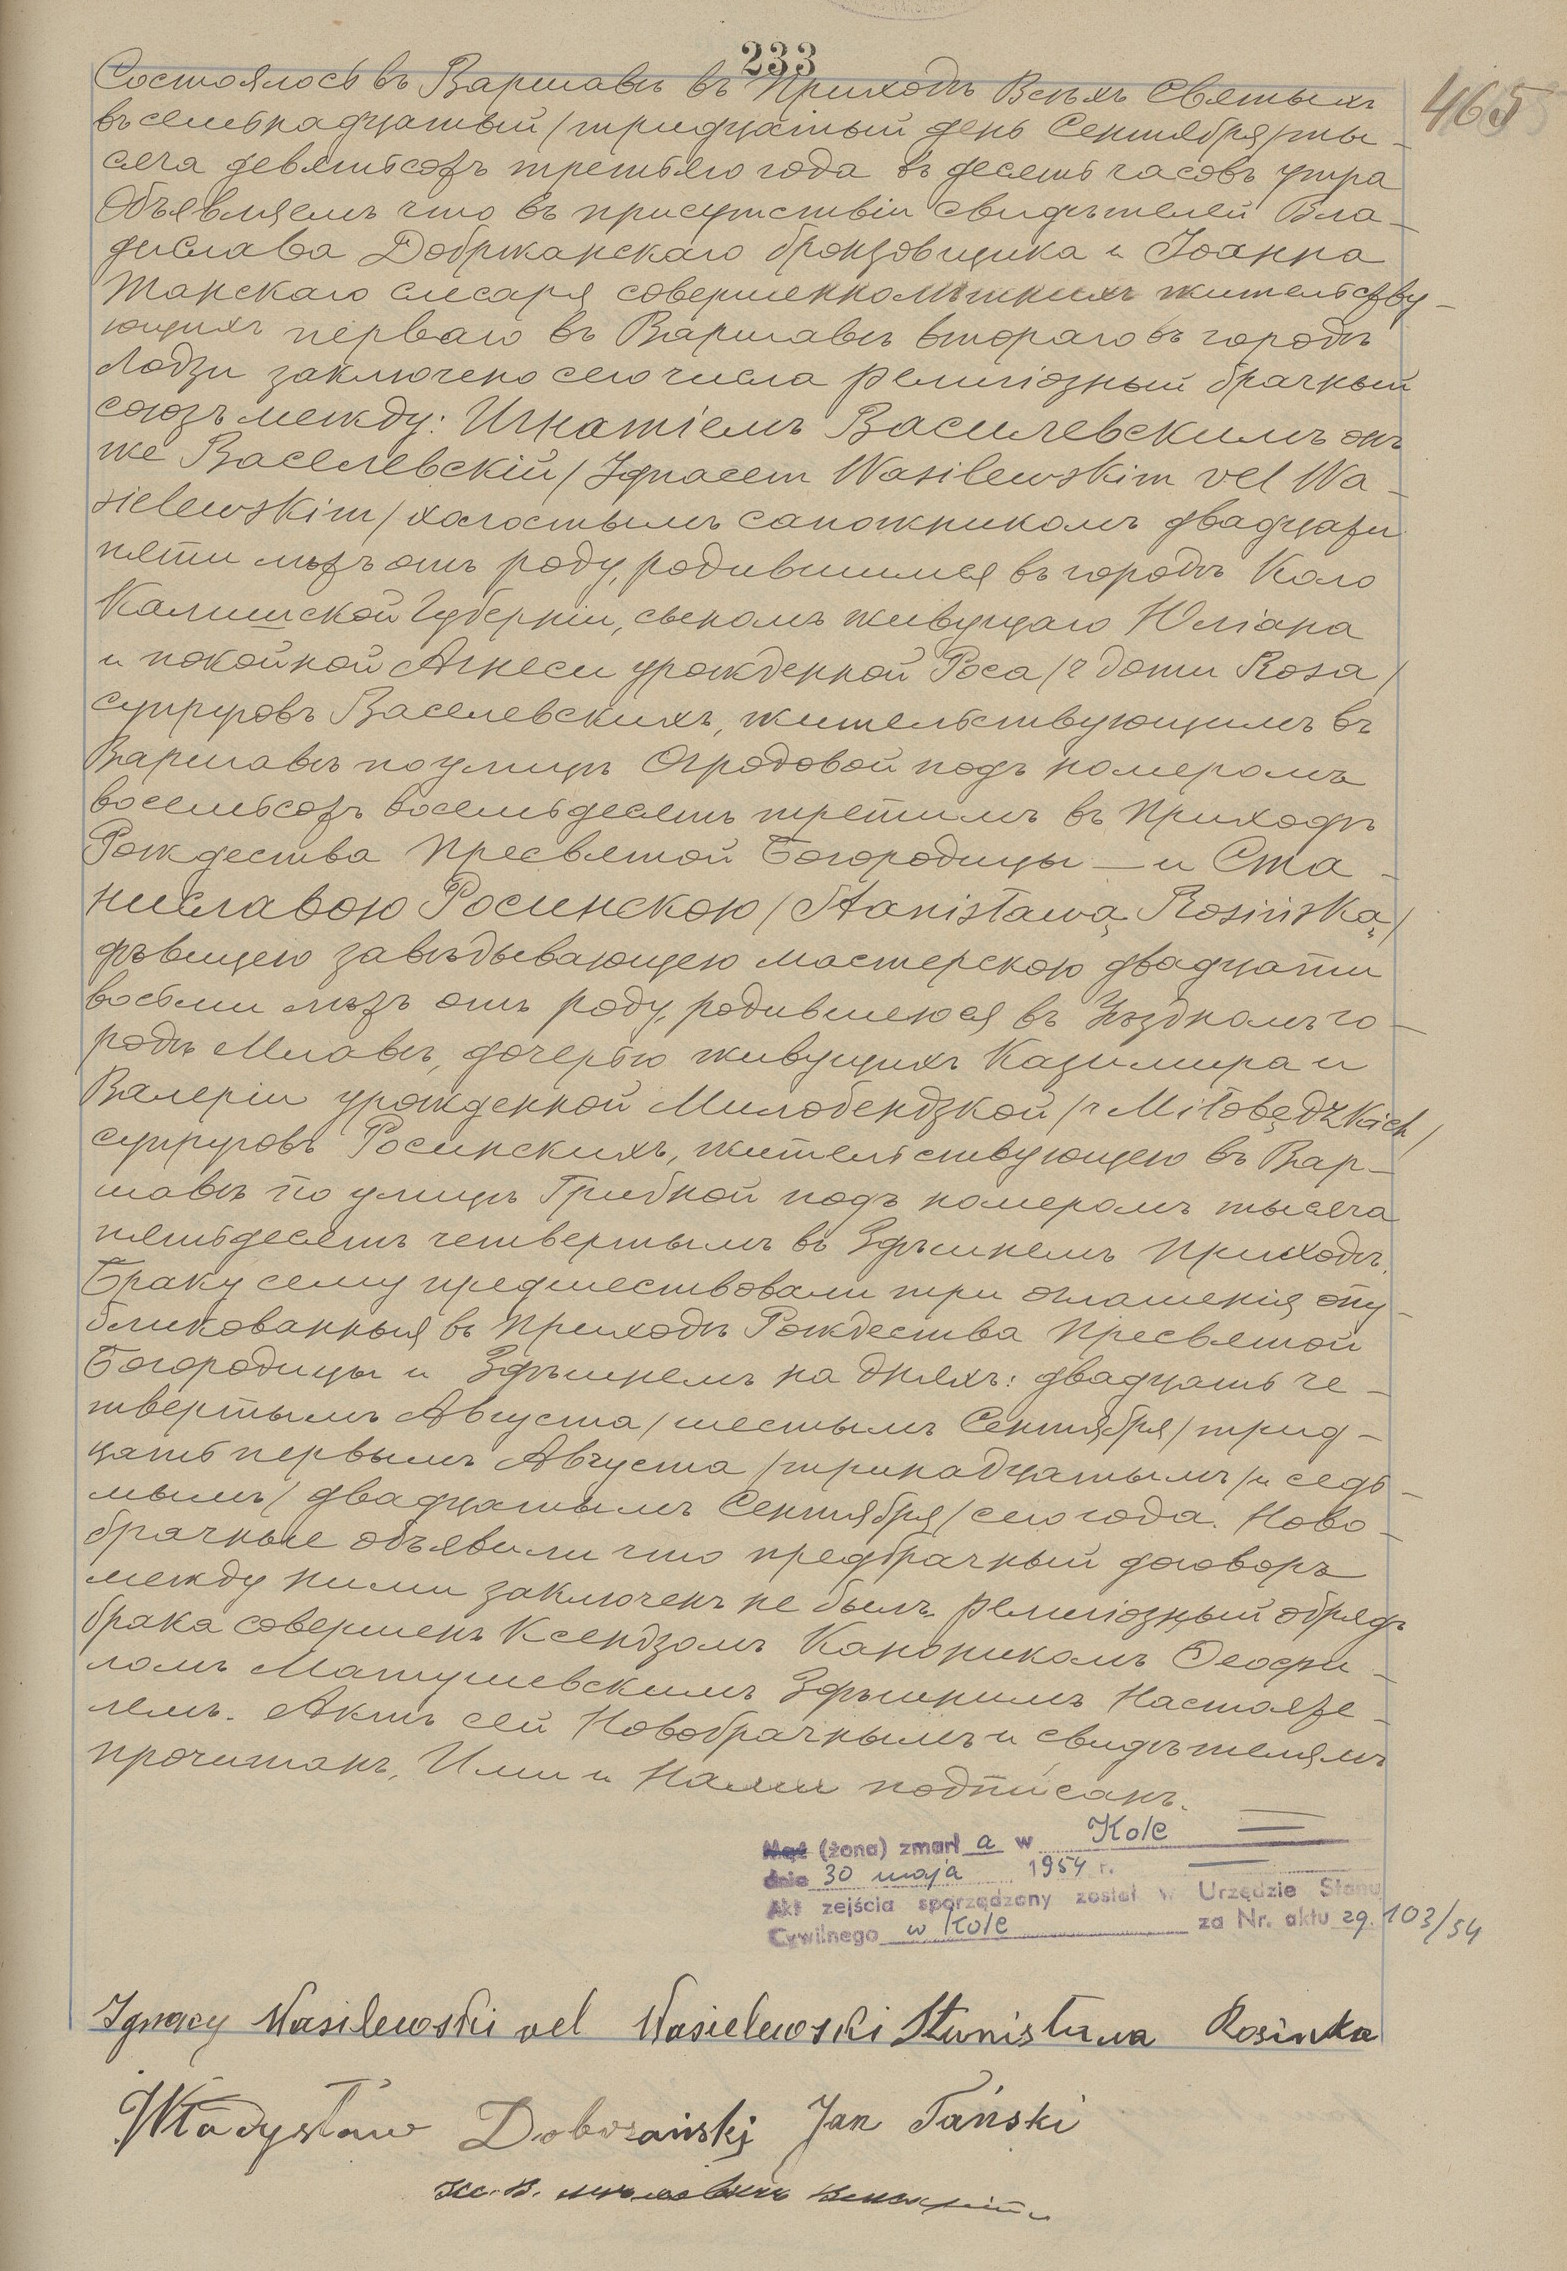 233
465
Состоялось въ Варшавѣ въ Приходѣ Всѣхъ Святыхъ
въ семьнадцатый /тридцатый день Сентября/ ты-
сяча девятьсотъ третьяго года въ десять часовъ утра
Объявляемъ что въ присутствіи свидѣтелей Вла-
дислава Добржанскаго бронзовщика и Іоанна
Танскаго слесаря совершеннолѣтнихъ жительству-
ющихъ перваго въ Варшавѣ втораго въ городѣ
Лодзи заключено сего числа религіозный брачный
союзъ между: Игнатіемъ Василевскимъ онъ
же Васелевскій /Ignacem Wasilewskim vel Wa-
sielewskim/ холостымъ сапожникомъ двадцати
пяти лѣтъ отъ роду, родившимся въ городѣ Коло
Калишской Губерніи, сыномъ живущаго Юліана
и покойной Агнеси урожденной Роса /z domu Rosa/
супруговъ Васелевскихъ, жительствующимъ въ
Варшавѣ по улицѣ Огродовой подъ номеромъ
восемьсотъ восемьдесятъ третимъ въ Приходѣ
Рождества Пресвятой Богородицы — и Ста-
ниславою Росинскою /Stanisławą Rosińską/
дѣвицею завѣдывающею мастерскою двадцати
восьми лѣтъ отъ роду, родившеюся въ Уѣздномъ го-
родѣ Млавѣ, дочерью живущихъ Казимира и
Валеріи урожденной Милобендзкой /z Miłobędzkich/
супруговъ Росинскихъ, жительствующею въ Вар-
шавѣ по улицѣ Грибной подъ номеромъ тысяча
пятьдесятъ четвертымъ въ Здѣшнемъ Приходѣ.
Браку сему предшествовали три оглашенія опу-
бликованныя въ Приходѣ Рождества Пресвятой
Богородицы и Здѣшнемъ на дняхъ: двадцать че-
твертымъ Августа /шестымъ Сентября/ трид-
цать первымъ Августа /тринадцатымъ/ и седь-
мымъ /двадцатымъ Сентября/ сего года. Ново-
брачные объявили что предбрачный договоръ
между ними заключенъ не былъ. Религіозный обрядъ
брака совершенъ Ксендзомъ Каноникомъ Теофи-
ломъ Матушевскимъ Здѣшнимъ Настояте-
лемъ. Актъ сей Новобрачнымъ и свидѣтелямъ
прочитанъ, Ими и Нами подписанъ.
Mąż (żona) zmarł a w Kole
dnia 30 maja 1954 r.
Akt zejścia sporządzony został w Urzędzie Stanu
Cywilnego w Kole za Nr. aktu zg. 103/54
Ignacy Wasilewski vel Wasielewski Stanisława Rosinska
Władysław Dobrzański Jan Tański